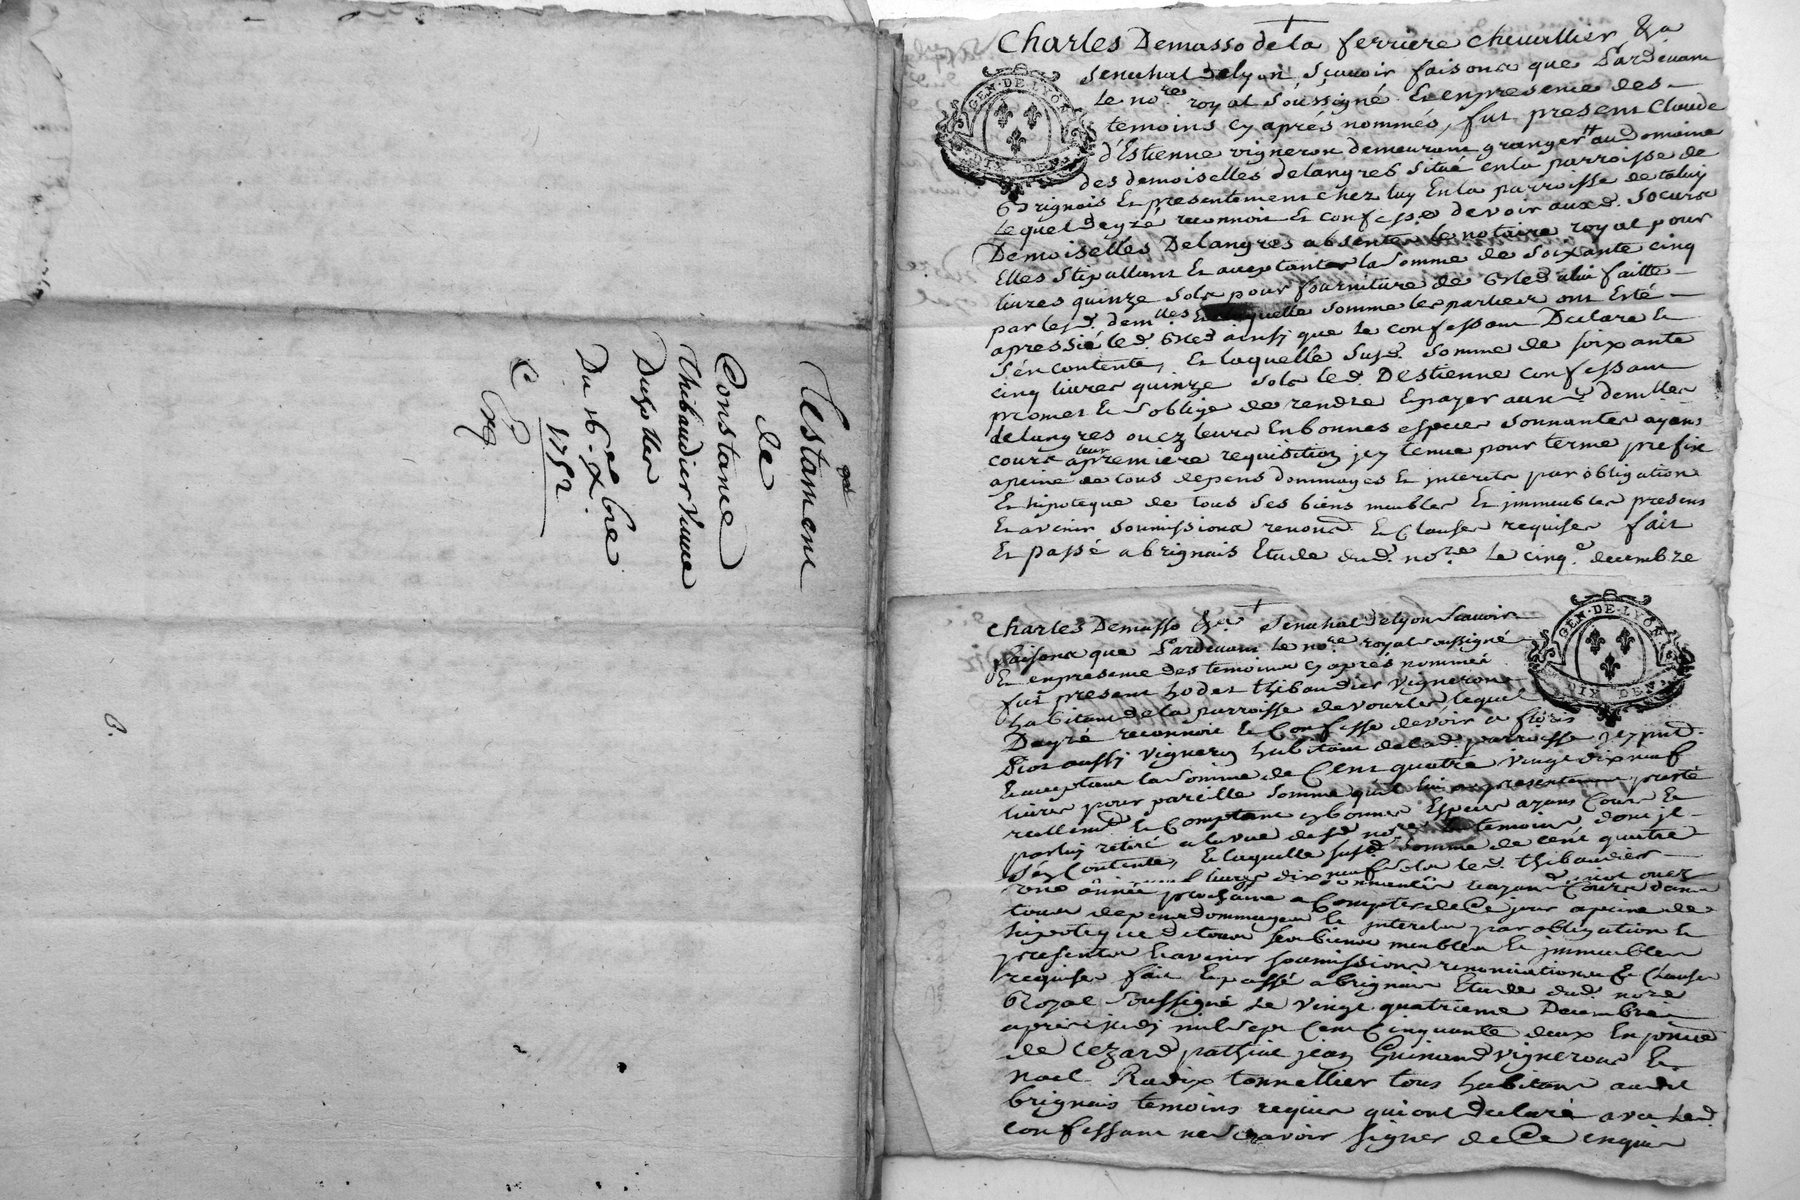 Testament
de
Constance
Thibaudier veuve
Du 16 9bre
1752
Charles Demasso de la ferriere chevallier &a
Senechal de lyon sçavoir faisons que Pardevant
Le nore royal soussigné Et en presence des
temoins cy aprés nommés, fut present Claude
d'Estienne vigneron demeurant granger au domaine
des demoiselles delangres situé en la parroisse de
Brignais Et presentement chez luy En la parroisse de taluy
Lequel de gré reconnoit Et confesse devoir auxd.
Demoiselles Delangres absentes le notaire royal pour
Elles stipullant Et acceptant la somme de soixante cinq
livres quinze sols pour fourniture de bled a lui faitte
par lesd. demlles laquelle somme les parties ont Esté
apressié led. bled ainsy que le confessant Declare Et
s'en contente, Et laquelle susd. somme de soixante
cinq livres quinze sols led. Destienne confessant
promet Et s'oblige de rendre Et payer auxd. demlles
delangres ou ez leurs En bonnes especes sonnantes ayant
cours a leur premiere requisition jcy tenue pour terme prefix
a peine de tous depens dommages Et interets par obligation
Et hipoteque de tous ses biens meubles Et immeubles presens
Et avenir soumissions renond. Et clauses requises fait
Et passé a brignais Etude dud. nore Le cinqe. decembre
GEN · DE · LYON
DIX DEN.
Charles Demasso &a. Senechal de lyon Scavoir
faisons que Pardevant Le nore royal soussigné
Et en presence des temoins cy aprés nommés
fut present thibaudier vigneron
habitant de la parroisse de vourles lequel
De gré reconnoit Et Confesse devoir a
aussy vigneron habitant de lad. parroisse jcy pnt
Et acceptant la somme de Cent quatre vingt dix neuf
livres pour pareille somme qu'il lui a presentement presté
reellemt. Et Comptant en bonnes Especes ayant Cours Et
par luy retiré a la vue desd. nore temoins dont jl
s'en Contente, Et laquelle susd. somme de cent quatre
livres dix neuf sols led. thibaudier
une année prochaine a Compter de Ce jour a peine de
tous depens dommages Et interets par obligation Et
hipoteque de tous ses biens meubles Et immeubles
presents Et avenir soumissions renonciations Et Clauses
requises fait Et passé a brignais Etude dud. nore
Royal soussigné Le vingt quatrieme Decembre
apres midy mil sept Cent Cinquante deux En
de Cezard pathiat jean Guinand vignerons Et
Noel Radix tonnellier tous habitans audit
brignais temoins requis qui ont declaré avec Led.
Confessant ne scavoir signer de Ce enquis
GEN · DE · LYON
DIX DEN.